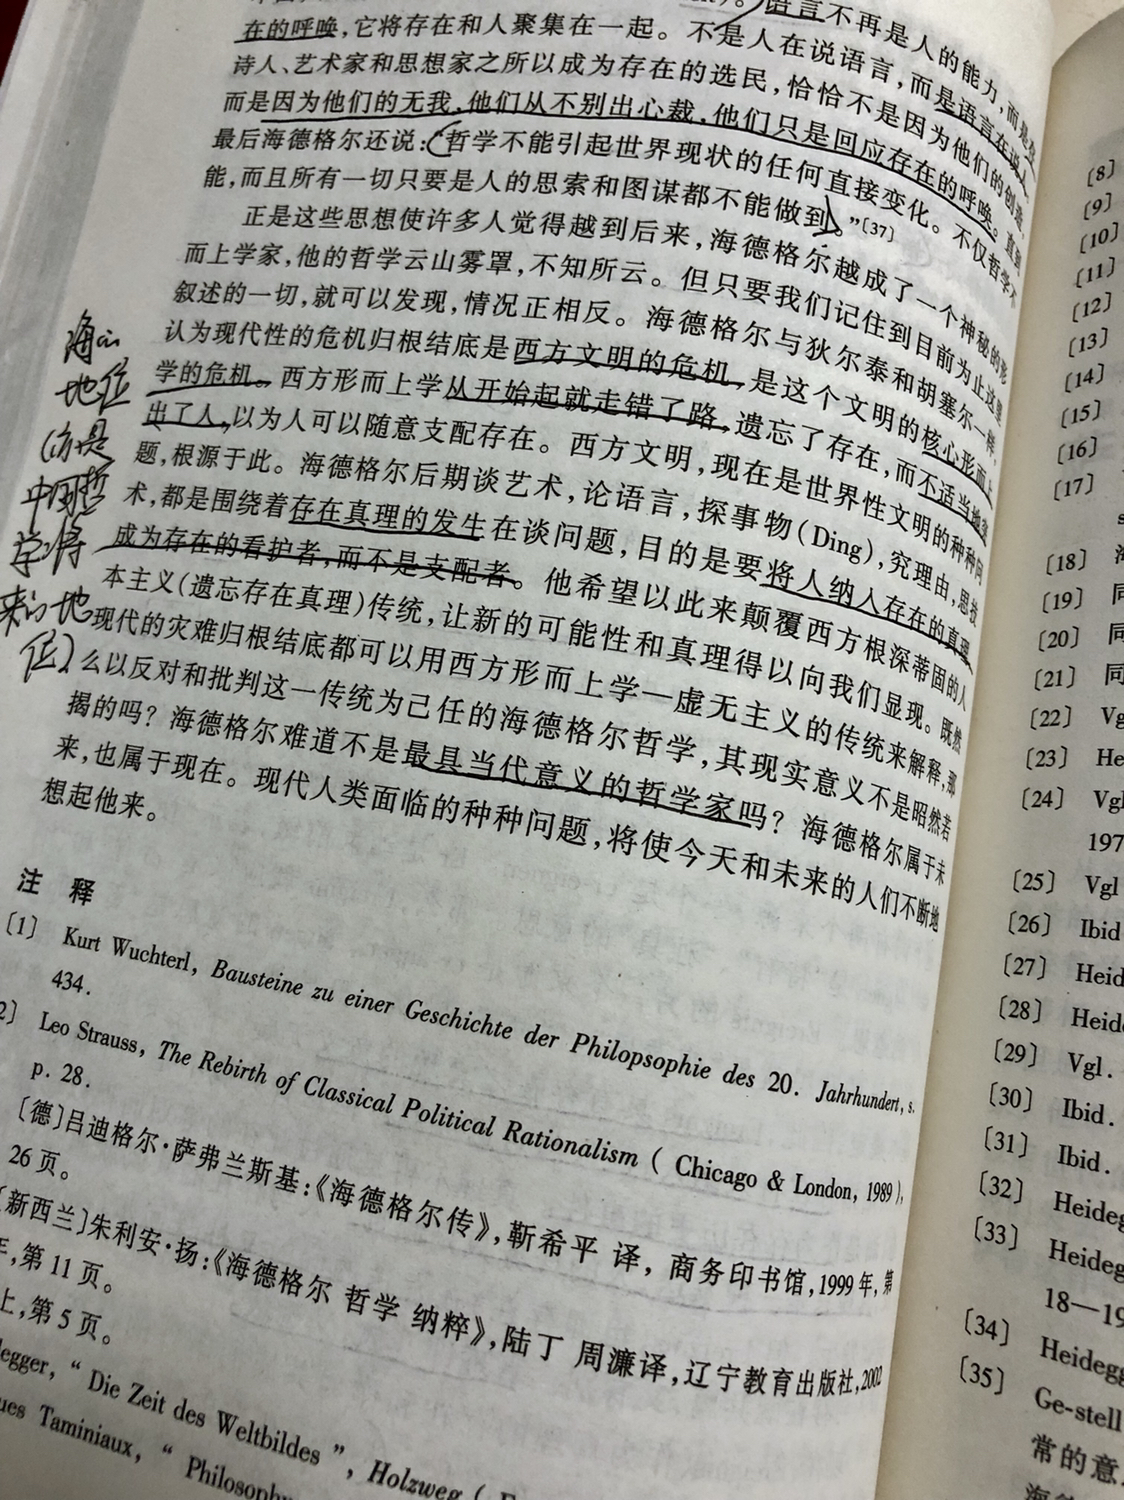 语言不再是人的能力,而是存
在的呼唤,它将存在和人聚集在一起。不是人在说语言,而是语言在说人。
诗人、艺术家和思想家之所以成为存在的选民,恰恰不是因为他们的创造,
而是因为他们的无我,他们从不别出心裁,他们只是回应存在的呼唤。直到
最后海德格尔还说:“哲学不能引起世界现状的任何直接变化。不仅哲学不
能,而且所有一切只要是人的思索和图谋都不能做到。”〔37〕
正是这些思想使许多人觉得越到后来,海德格尔越成了一个神秘的形
而上学家,他的哲学云山雾罩,不知所云。但只要我们记住到目前为止这里
叙述的一切,就可以发现,情况正相反。海德格尔与狄尔泰和胡塞尔一样,
认为现代性的危机归根结底是西方文明的危机,是这个文明的核心形而上
学的危机。西方形而上学从开始起就走错了路,遗忘了存在,而不适当地突
出了人,以为人可以随意支配存在。西方文明,现在是世界性文明的种种问
题,根源于此。海德格尔后期谈艺术,论语言,探事物(Ding),究理由,思技
术,都是围绕着存在真理的发生在谈问题,目的是要将人纳入存在的真理,
成为存在的看护者,而不是支配者。他希望以此来颠覆西方根深蒂固的人
本主义(遗忘存在真理)传统,让新的可能性和真理得以向我们显现。既然
现代的灾难归根结底都可以用西方形而上学—虚无主义的传统来解释,那
么以反对和批判这一传统为己任的海德格尔哲学,其现实意义不是昭然若
揭的吗?海德格尔难道不是最具当代意义的哲学家吗?海德格尔属于未
来,也属于现在。现代人类面临的种种问题,将使今天和未来的人们不断地
想起他来。
海的
地位
(仿是
中国哲
学将
来的地
位)
注 释
〔1〕 Kurt Wuchterl, Bausteine zu einer Geschichte der Philopsophie des 20. Jahrhundert, s.
434.
2〕 Leo Strauss, The Rebirth of Classical Political Rationalism ( Chicago & London, 1989 ),
p. 28.
〔德〕吕迪格尔·萨弗兰斯基:《海德格尔传》,靳希平 译,商务印书馆,1999年,第
26页。
〔新西兰〕朱利安·扬:《海德格尔 哲学 纳粹》,陆丁 周濂译,辽宁教育出版社,2002
年,第11页。
上,第5页。
degger, “ Die Zeit des Weltbildes ”, Holzweg (
ues Taminiaux, “ Philosoph
〔8〕
〔9〕
〔10〕
〔11〕
〔12〕
〔13〕
〔14〕
〔15〕
〔16〕
〔17〕
s
〔18〕
〔19〕 同
〔20〕 同
〔21〕 同
〔22〕 Vg
〔23〕 He
〔24〕 Vgl
197
〔25〕 Vgl
〔26〕 Ibid
〔27〕 Heid
〔28〕 Heide
〔29〕 Vgl.
〔30〕 Ibid.
〔31〕 Ibid.
〔32〕 Heideg
〔33〕 Heideg
18—19
〔34〕 Heidegg
〔35〕 Ge-stell
常的意